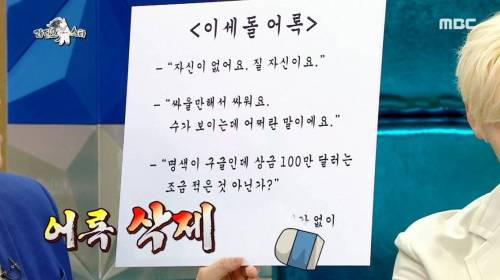 MBC
<이세돌 어록>
- "자신이 없어요. 질 자신이요."
- "싸울만해서 싸워요.
수가 보이는데 어쩌란 말이에요."
- "명색이 구글인데 상금 100만 달러는
조금 적은 것 아닌가?"
없이
어록 삭제